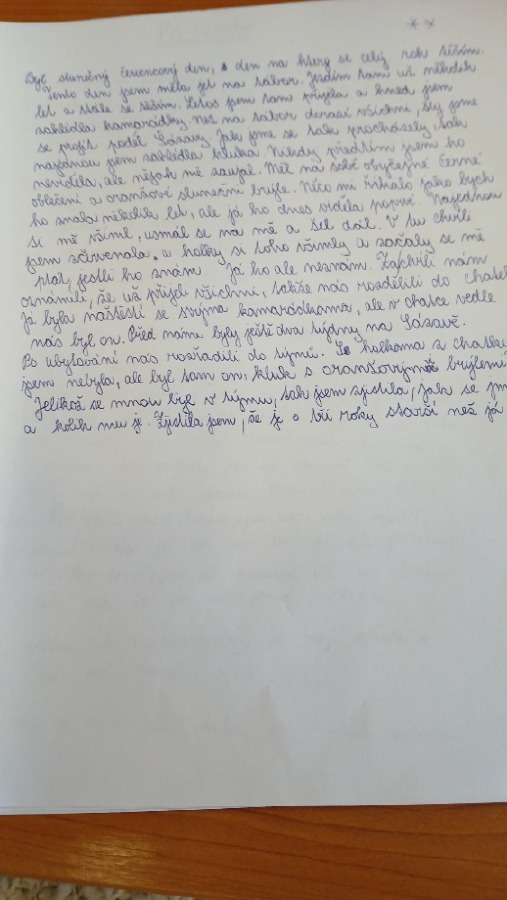 * *
Byl slunečný červencový den, den na který se celý rok těším.
Tento den jsem měla jet na tábor. Jezdím tam už několik
let a stále se těším. Letos jsem tam přijela a hned jsem
zahlédla kamarádky. Než na tábor dorazí všichni, šly jsme
se projít podél Sázavy. Jak jsme se tak procházely, tak
najednou jsem zahlédla kluka. Nikdy předtím jsem ho
neviděla, ale nějak mě zaujal. Měl na sobě obyčejné černé
oblečení a oranžové sluneční brýle. Něco mi říkalo jako bych
ho znala několik let, ale já ho dnes viděla poprvé. Najednou
si mě všiml, usmál se na mě a šel dál. V tu chvíli
jsem zčervenala, a holky si toho všimly a začaly se mě
ptát, jestli ho znám. Já ho ale neznám. Zachvíli nám
oznámili, že už přijeli všichni, takže nás rozdělili do chatek
Já byla naštěstí se svýma kamarádkama, ale v chatce vedle
nás byl on. Před náma byly ještě dva týdny na Sázavě.
Po ubytování nás rozřadili do týmů. S holkama z chatky
jsem nebyla, ale byl tam on, kluk s oranžovýma brýlemi
Jelikož se mnou byl v týmu, tak jsem zjistila, jak se jm
a kolik mu je. Zjistila jsem, že je o tři roky starší než já